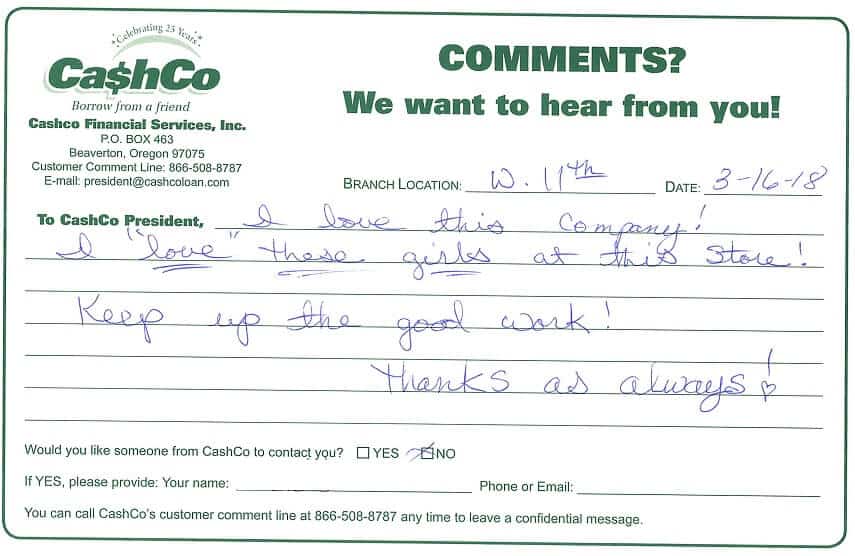 Celebrating 25 Years
Ca$hCo
Borrow from a friend
Cashco Financial Services, Inc.
P.O. BOX 463
Beaverton, Oregon 97075
Customer Comment Line: 866-508-8787
E-mail: president@cashcoloan.com
COMMENTS?
We want to hear from you!
BRANCH LOCATION: W. 11th DATE: 3-16-18
To CashCo President, I love this Company!
I "love" these girls at this Store!
Keep up the good work!
Thanks as always!
Would you like someone from CashCo to contact you? YES NO
If YES, please provide: Your name: Phone or Email:
You can call CashCo's customer comment line at 866-508-8787 any time to leave a confidential message.